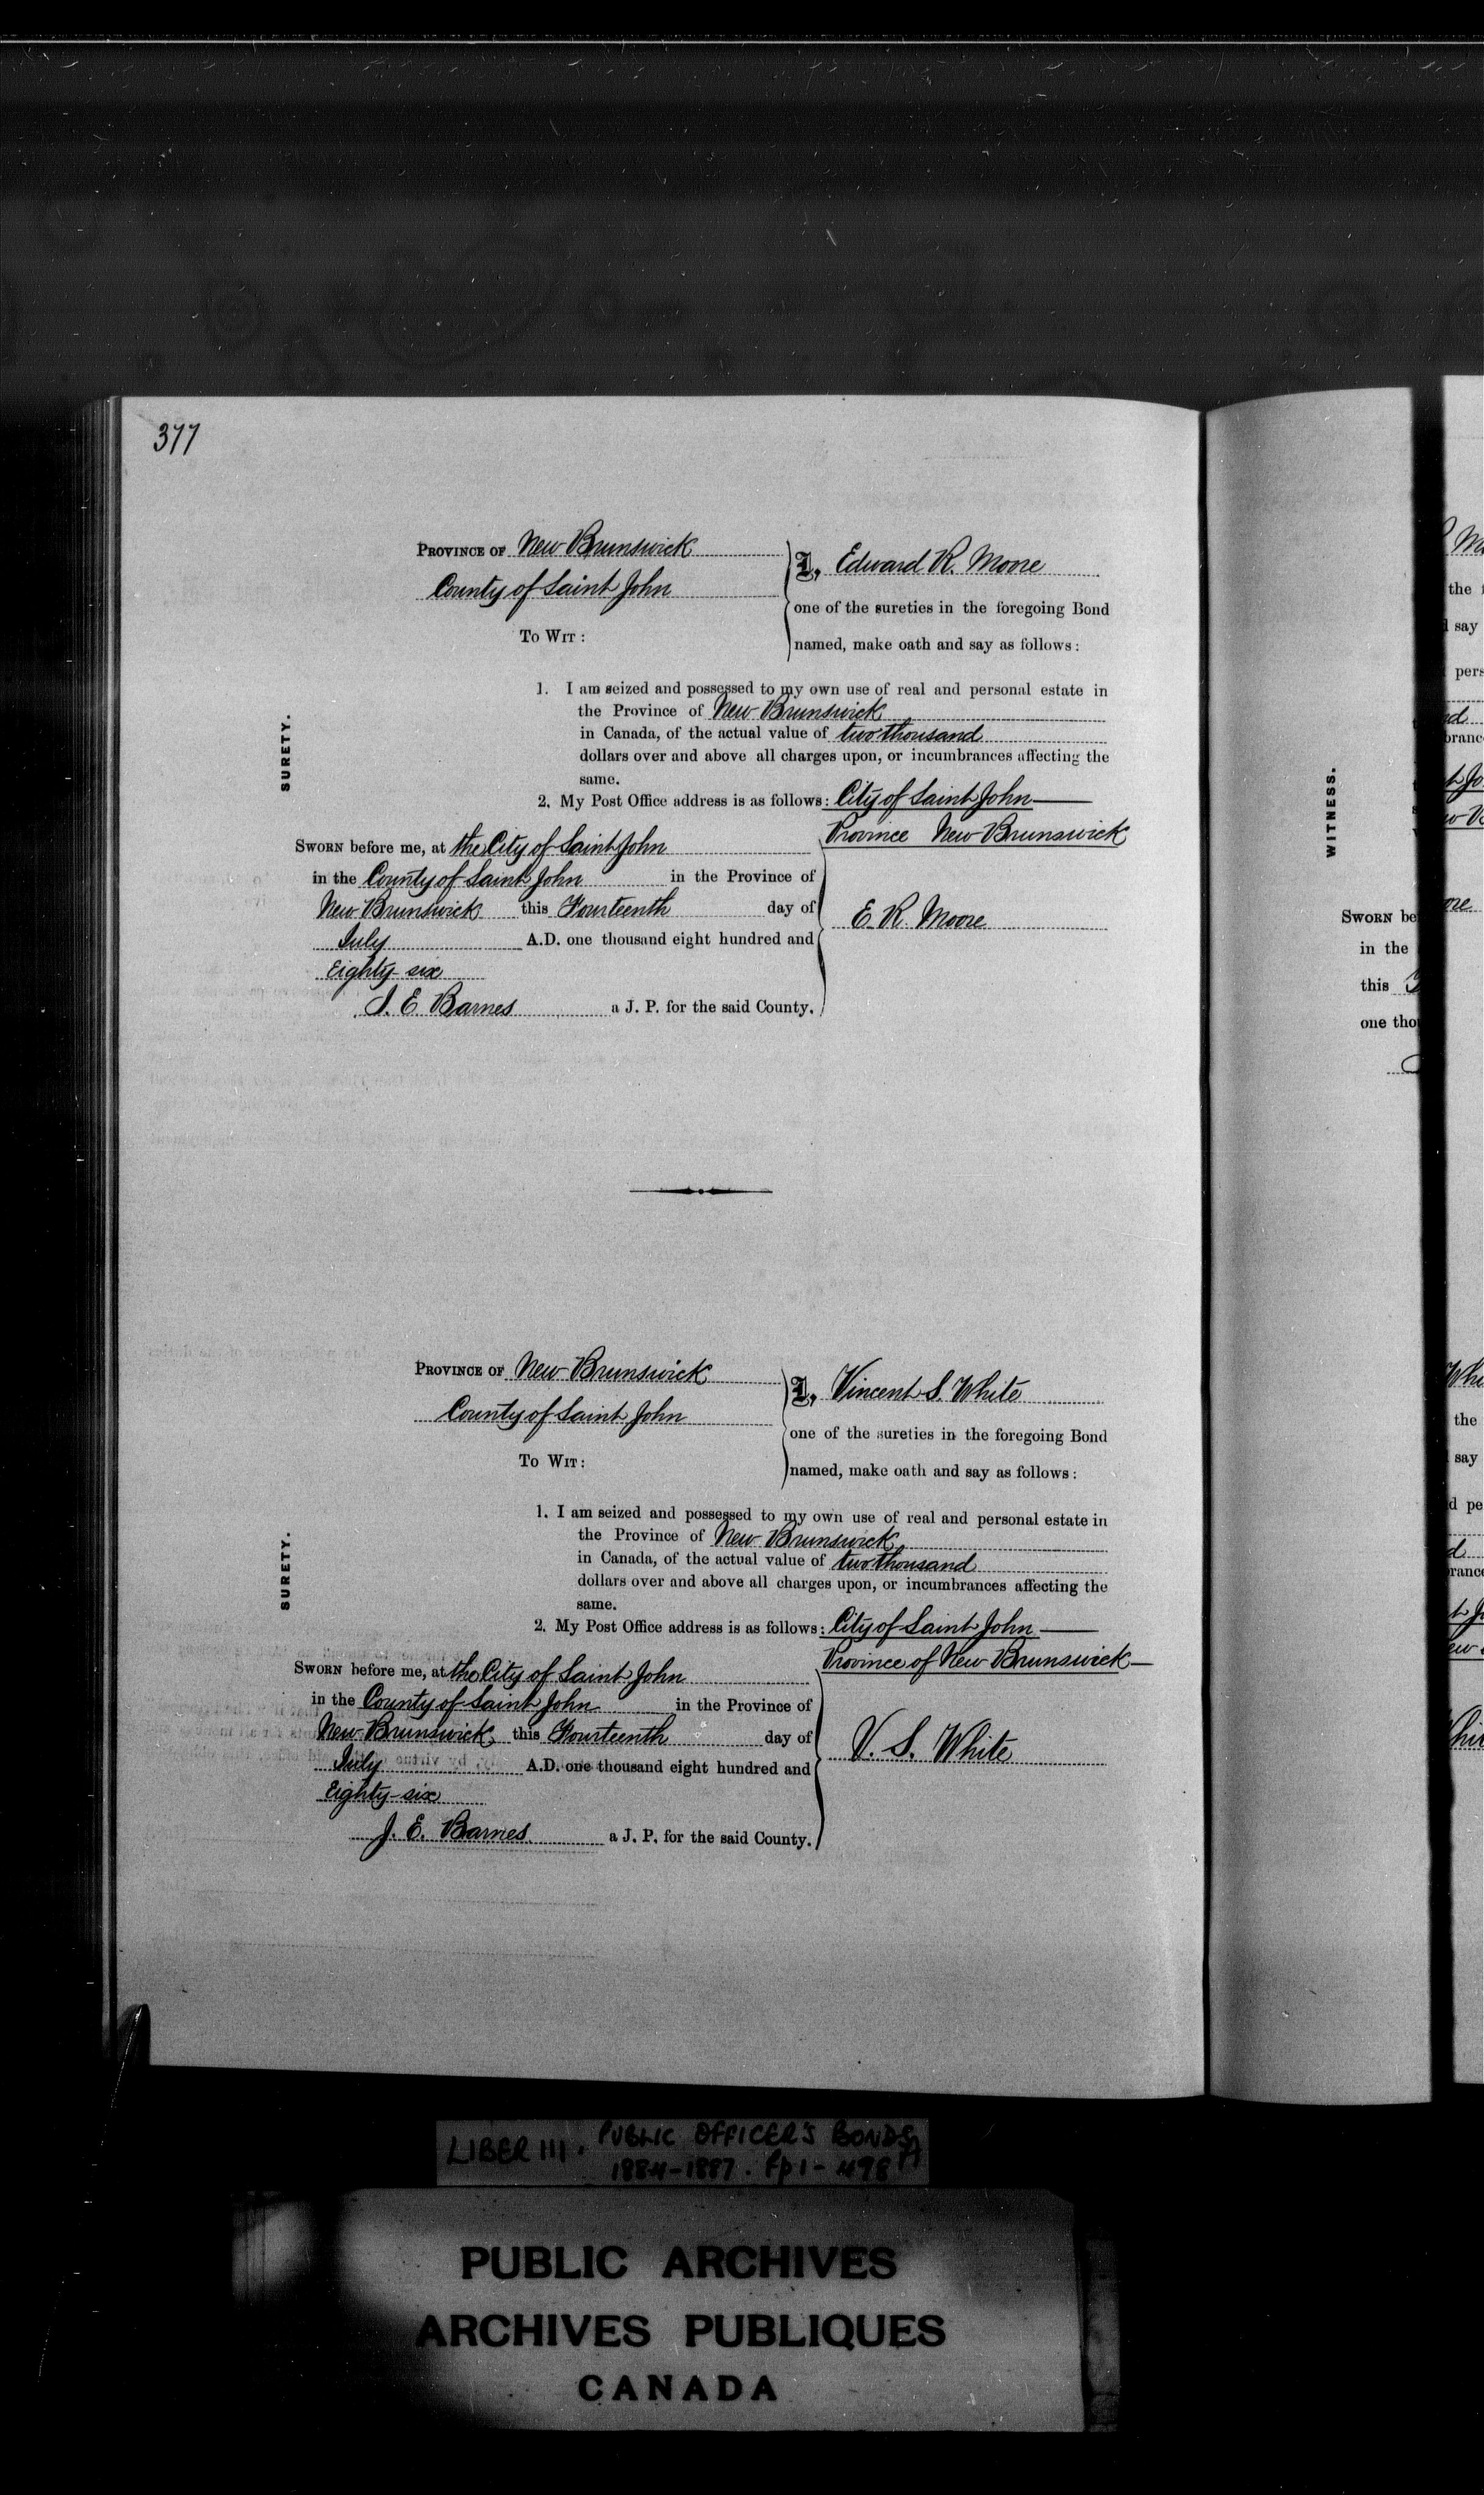 377
PROVINCE OF New Brunswick
County of Saint John
TO WIT:
I, Edward R. Moore
one of the sureties in the foregoing Bond
named, make oath and say as follows:
SURETY.
1. I am seized and possessed to my own use of real and personal estate in
the Province of New Brunswick
in Canada, of the actual value of two thousand
dollars over and above all charges upon, or incumbrances affecting the
same.
2. My Post Office address is as follows: City of Saint John
Province New Brunswick
SWORN before me, at the City of Saint John
in the County of Saint John in the Province of
New Brunswick this Fourteenth day of
July A.D. one thousand eight hundred and
Eighty-six
J. E. Barnes a J. P. for the said County.
E. R. Moore
PROVINCE OF New Brunswick
County of Saint John
TO WIT:
I, Vincent S. White
one of the sureties in the foregoing Bond
named, make oath and say as follows:
SURETY.
1. I am seized and possessed to my own use of real and personal estate in
the Province of New Brunswick
in Canada, of the actual value of two thousand
dollars over and above all charges upon, or incumbrances affecting the
same.
2. My Post Office address is as follows: City of Saint John
Province of New Brunswick
SWORN before me, at the City of Saint John
in the County of Saint John in the Province of
New Brunswick this Fourteenth day of
July A.D. one thousand eight hundred and
Eighty-six
J. E. Barnes a J. P. for the said County.
V. S. White
WITNESS.
SWORN be
in the
this
one thou
the
say
pers
the
say
LIBER III. PUBLIC OFFICER'S BONDS
1884-1887. fp 1-498A
PUBLIC ARCHIVES
ARCHIVES PUBLIQUES
CANADA